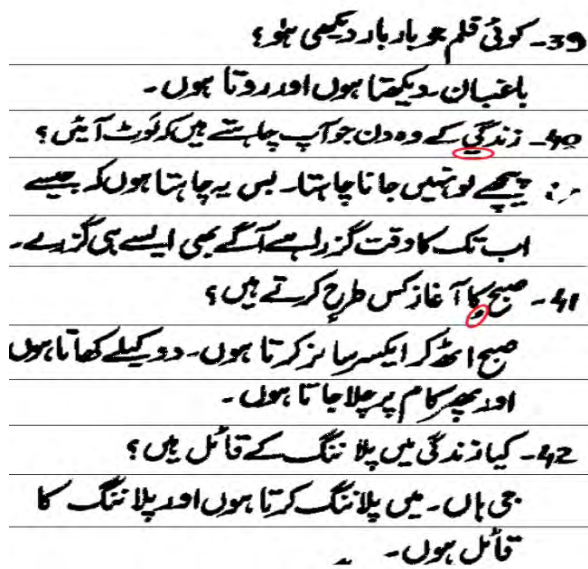 39۔ کوئی فلم جو بار بار دیکھی ہو؟
باغبان۔ دیکھتا ہوں اور روتا ہوں۔
40۔ زندگی کے وہ دن جو آپ چاہتے ہیں کہ لوٹ آئیں؟
پیچھے تو نہیں جانا چاہتا۔ بس یہ چاہتا ہوں کہ جیسے
اب تک کا وقت گزرا ہے آگے بھی ایسے ہی گزرے۔
41۔ صبح کا آغاز کس طرح کرتے ہیں؟
صبح اٹھ کر ایکسرسائز کرتا ہوں۔ دو کیلے کھاتا ہوں
اور پھر کام پر چلا جاتا ہوں۔
42۔ کیا زندگی میں پلاننگ کے قائل ہیں؟
جی ہاں۔ میں پلاننگ کرتا ہوں اور پلاننگ کا
قائل ہوں۔